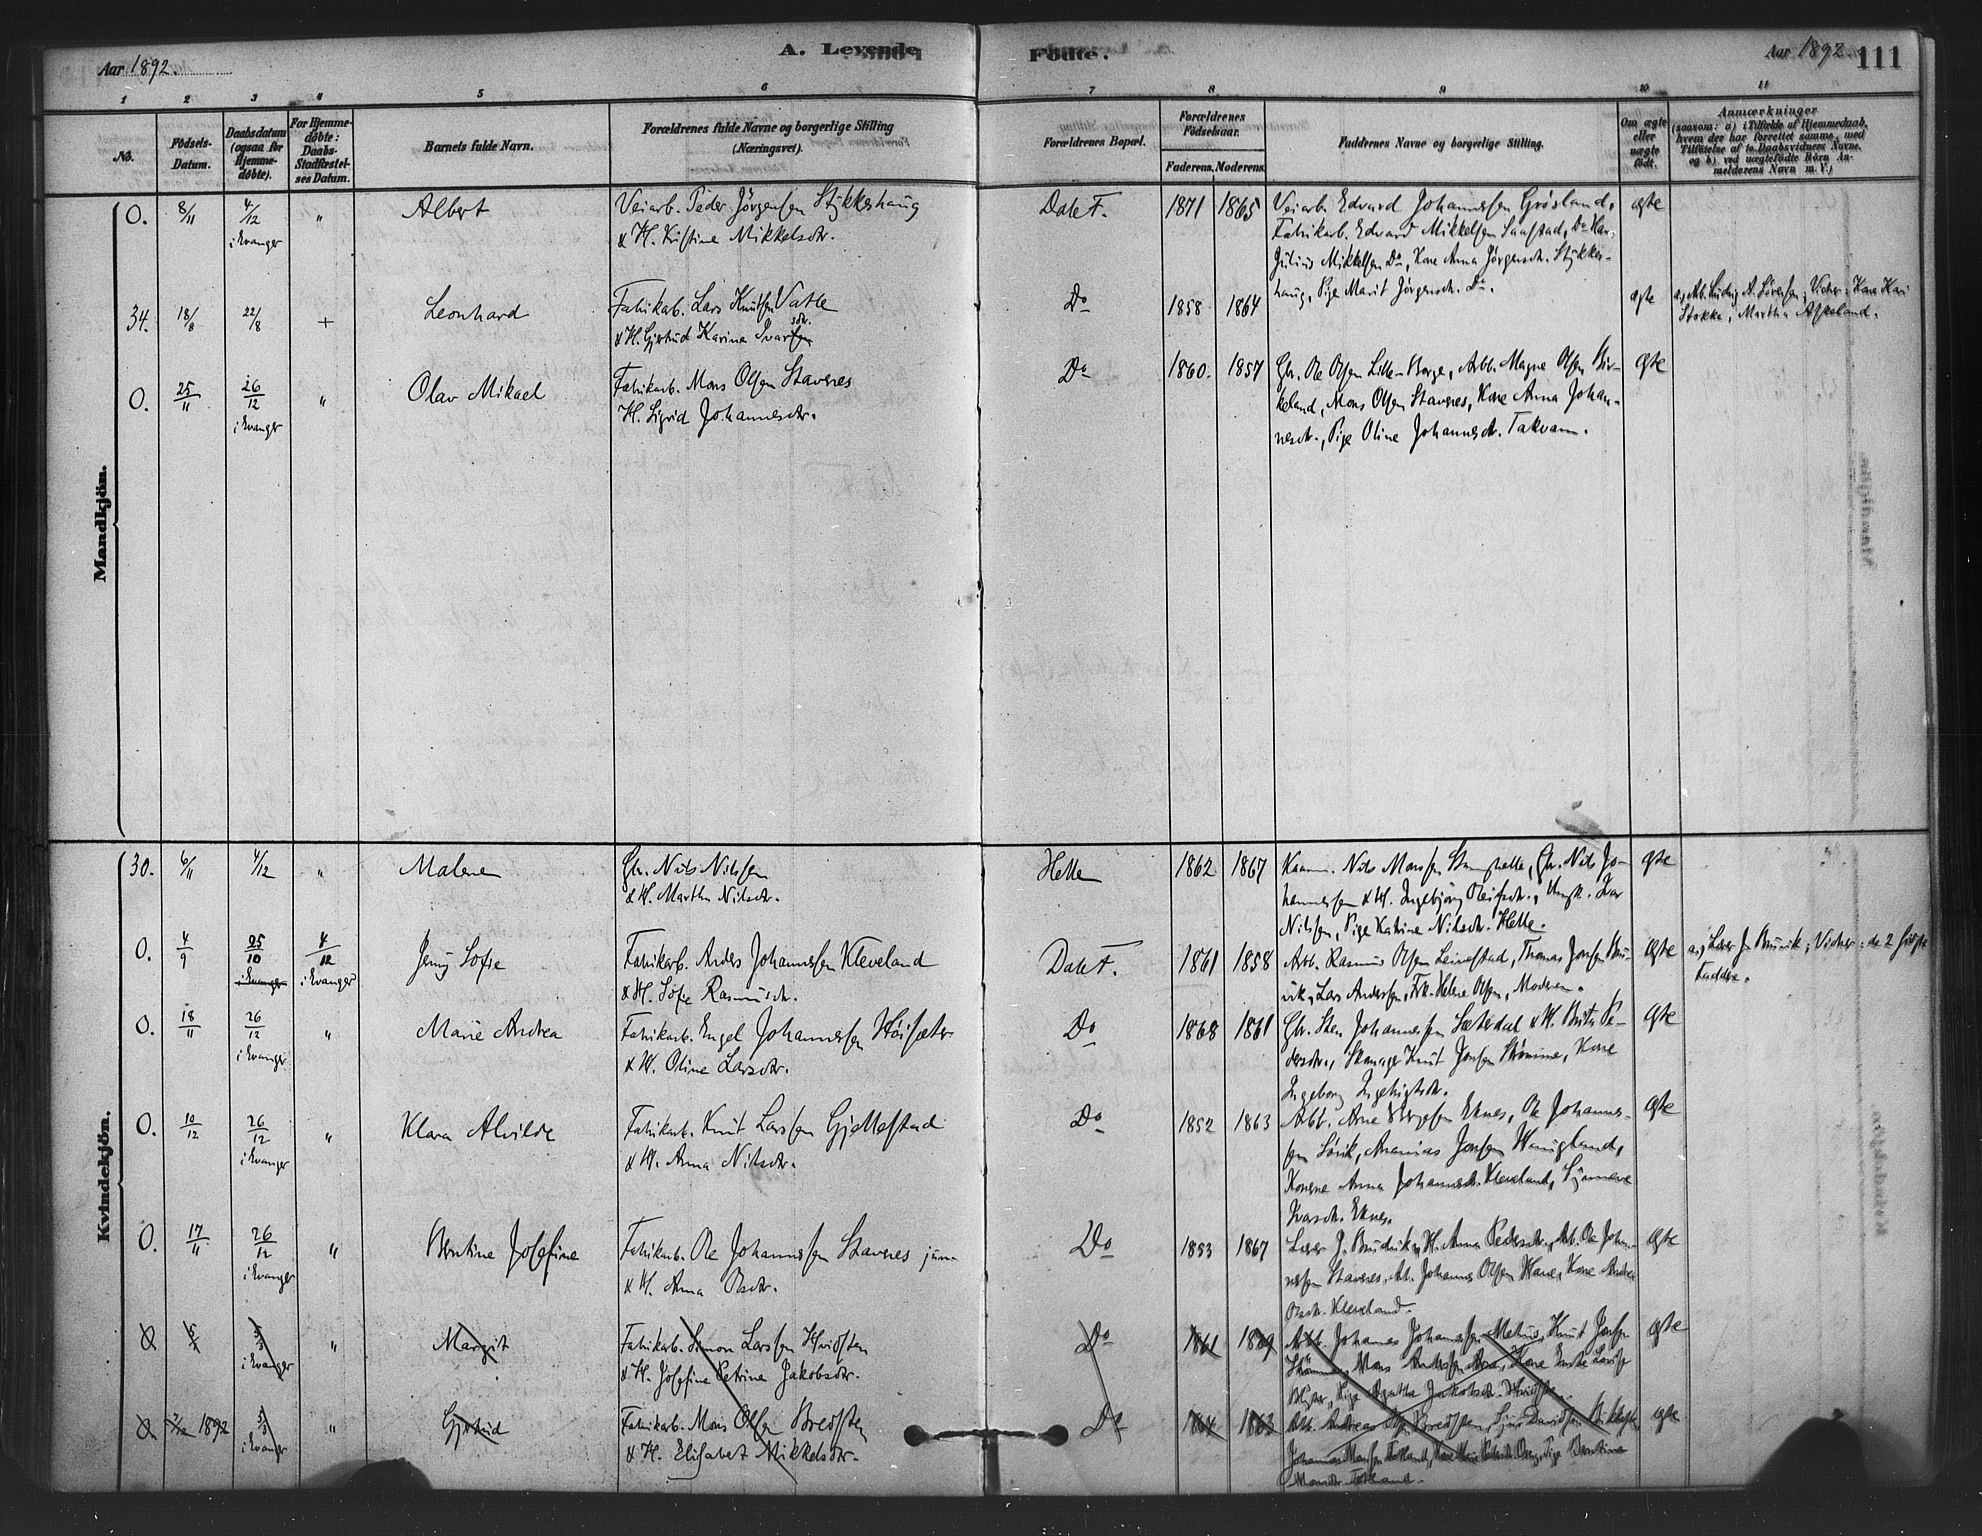 Aar 1892.
A. Levende
Födte.
Aar 1892. 111
1 2 3 4 5 6 7 8 9 10 11
No.
Födsels-Datum.
Daabsdatum (ogsaa for Hjemme-döbte).
For Hjemme-döbte: Daabs-Stadfæstel-ses Datum.
Barnets fulde Navn.
Forældrenes fulde Navne og borgerlige Stilling (Næringsvei).
Forældrenes Bopæl.
Forældrenes Födselsaar.
Faderens. Moderens.
Faddernes Navne og borgerlige Stilling.
Om ægte eller uægte födt.
Anmærkninger
(saasom: a) i Tilfælde af Hjemmedaab,
hvem der har forrettet samme, med
Tilföielse af to Daabsvidners Navne,
og b) ved uægtefödte Börn An-
melderens Navn m. V.)
Mandkjön.
O. 8/11 4/12 i Evanger " Albert
Veiarb. Peder Jörgensen Stykkeshaug
& H. Kristine Mikkelsdtr.
Dale F. 1871 1865
Veiarb. Edvard Johannessen
Fabrikarb. Edvard Mikkelsen
Julius Mikkelsen Do, Kone Anna Jörgensdtr. Stykkes-
haug, Pige Marit Jörgensdtr. Do.
ægte
34. 18/8 22/8 + Leonhard
Fabrikarb. Lars Knutsen Vatle
& H. Gjertrud Karine Ivarsdtr.
Do 1858 1864 ægte
a, Arb. Ludvig A. Sörensen, Vidner: Kone Kari
Stokke, Martha
O. 25/11 26/12 i Evanger " Olav Mikael
Fabrikarb. Mons Olsen Stavenes
H. Sigrid Johannesdtr.
Do 1860. 1857
Gbr. Ole Olsen Lille-Borge, Arb. Magne Olsen Bir-
keland, Mons Olsen Stavenes, Kone Anna Johan-
nesdtr., Pige Oline Johannesdtr. Takvam.
ægte
Kvindekjön.
30. 6/11 4/12 " Malene
Gbr. Nils Nilssen
& H. Martha Nilsdtr.
Helle 1862 1867
Kaarm. Nils Monssen Gbr. Nils Jo-
hannessen & H. Ingebjörg Ungk. Ivar
Nilssen, Pige Katrine Nilsdtr. Helle.
ægte
O. 4/9 25/10 i Evanger 4/12 i Evanger Jenny Sofie
Fabrikarb. Anders Johannessen Kleveland
& H. Sofie Rasmusdtr.
Dale F. 1861 1858
Arb. Rasmus Olsen Leinestad, Thomas Jonsen Bru-
vik, Lars Anderssen, Frk. Helene Olsen, Moderen.
ægte
a, Lærer J. Bruvik; Vidner: de 2 sidste
Faddere.
O. 18/11 26/12 i Evanger " Marie Andrea
Fabrikarb. Engel Johannessen Höisæter
& H. Oline Larsdtr.
Do 1868 1861
Gbr. Sten Johannessen Sæterdal & H. Brita Pe-
dersdtr., Skomager Knut Jonsen Strömme, Kone
Ingeborg Ingebrigtsdtr.
ægte
O. 10/12 26/12 i Evanger " Klara Alvilde
Fabrikarb. Knut Larssen Gjellestad
& H. Anna Nilsdtr.
Do 1852 1863
Arb. Arne Eknes, Ole Johannes-
sen Ananias Jonsen
Konerne Anna Johannesdtr. Kleveland, Synneve
Ivarsdtr. Eknes.
ægte
O. 17/11 26/12 i Evanger " Berntine Josefine
Fabrikarb. Ole Johannessen Stavenes jun.
& H. Anna Olsdtr.
Do 1853 1867
Lærer J. Brudvik, H. Anna Pedersdtr., Arb. Ole Johan-
nessen Stavenes, Arb. Johannes Olsen Kone Andrea
Olsdtr. Kleveland.
ægte
O 5/3 i Evanger " Margit
Fabrikarb. Simon Larssen
& H. Josefine Petrine Jakobsdtr.
Do 1861
Arb. Johannes Johannessen Knut Jonsen
Mons Anderssen Kone
Pige Agatha Jakobsdtr.
ægte
O 1892 5/3 i Evanger " Gjertrud
Fabrikarb. Mons Olsen
& H. Elisabet Mikkelsdtr.
Do 1864 1863
Arb. Andreas
Johannes Monssen Pige Berntine
Monsdtr.
ægte